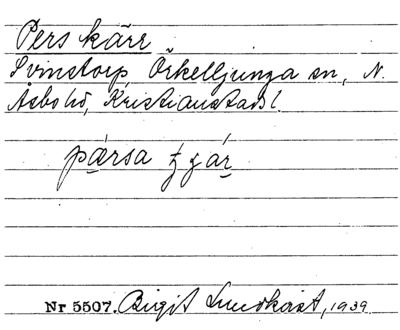 Pers kärr
Svinstorp Örkelljunga sn, N.
Åsbo hd, Kristianstads l.
pǽrsa
Nr 5507. Birgit Lundkvist, 1939